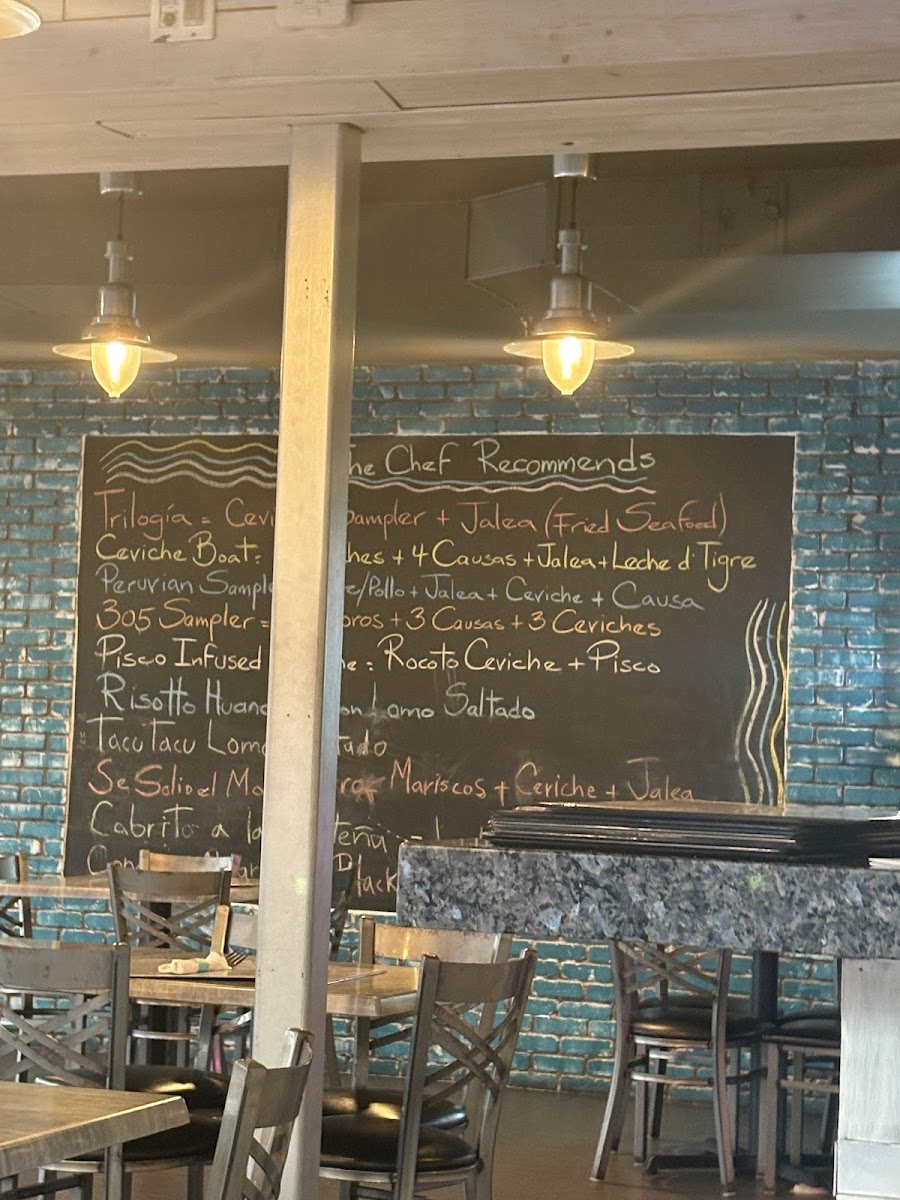 he Chef Recommends
Trilogía = Cevi ampler + Jalea (Fried Seafood)
Ceviche Boat: hes + 4 Causas + Jalea + Leche d' Tigre
Peruvian Sample e/Pollo + Jalea + Ceviche + Causa
305 Sampler = ros + 3 Causas + 3 Ceviches
Pisco Infused e: Rocoto Ceviche + Pisco
Risotto Huanc on Lomo Saltado
Tacu Tacu Lomo tado
Se Salio el Ma Mariscos + Ceviche + Jalea
Cabrito a la teña